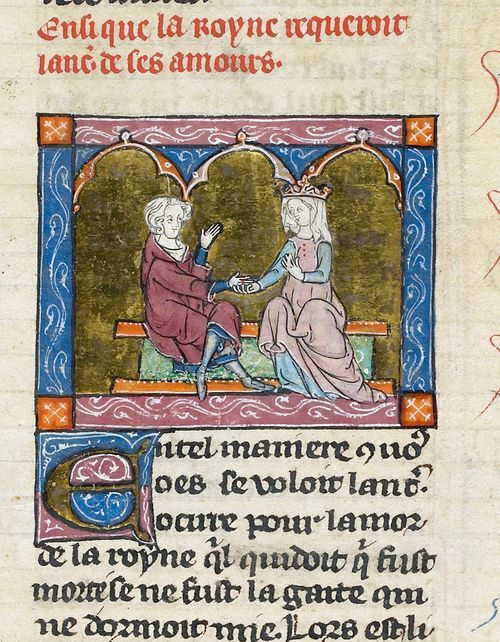 Ensi que la royne requeroit
lanc̄. de ses amours.
Entel maniere ꝯ uoꝰ
oes se voloit lanc̄.
ocirre pour lamor
de la royne q̄l quidoit q̄ fust
morte se ne fust la gaite qui
ne dormoit mie. Lors est li